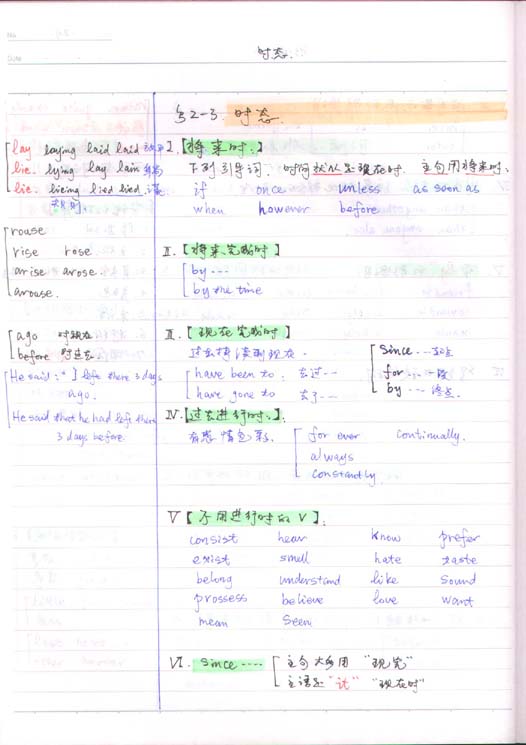 No
Date
时态.
§2-3. 时态
lay laying laid laid
lie. lying lay lain
lie. lieing lied lied. 谎
规则.
rouse
rise rose.
arise arose.
arouse.
ago 对现在
before 对过去.
He said: "I left there 3 days
ago.
He said that he had left there
3 days before.
I.【将来时.】
下列引导词, 时间状从是现在时. 主句用将来时.
if once unless as soon as
when however before
II.【将来完成时】
by ...
by the time
III.【现在完成时】
过去持续到现在.
have been to: 去过...
have gone to 去了...
Since ...
for ... 一段
by ... 终点.
IV.【过去进行时:】
有感情色彩.
for ever continually.
always
constantly.
V【不用进行时的V】:
consist hear know prefer
exist smell hate taste
belong understand like sound
prossess believe love want
mean seem
VI. since ....
主句大多用 "现完"
主语是 "it" "现在时"